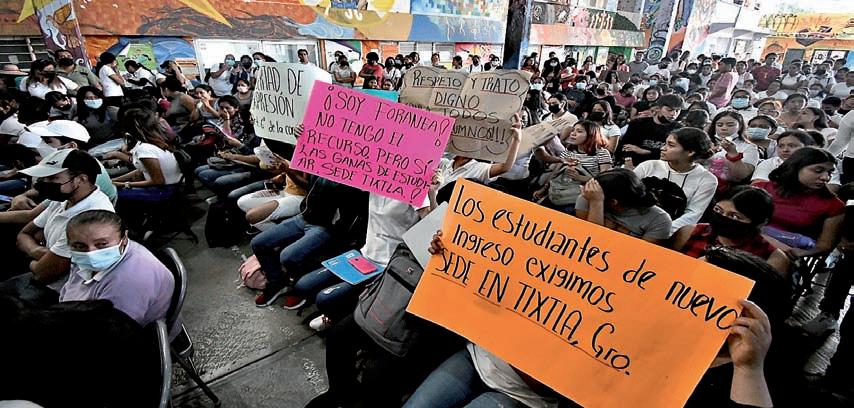 TAD, DE
PRESIÓN
¡SOY FORANEA!
NO TENGO EL
RECURSO, PERO SÍ
LAS GANAS DE ESTUDI
AR. SEDE TIXTLA!
RESPETO Y TRATO
DIGNO
TODOS
ALUMNOS!!!
Los estudiantes de nuevo
Ingreso exigimos
SEDE EN TIXTLA, Gro.